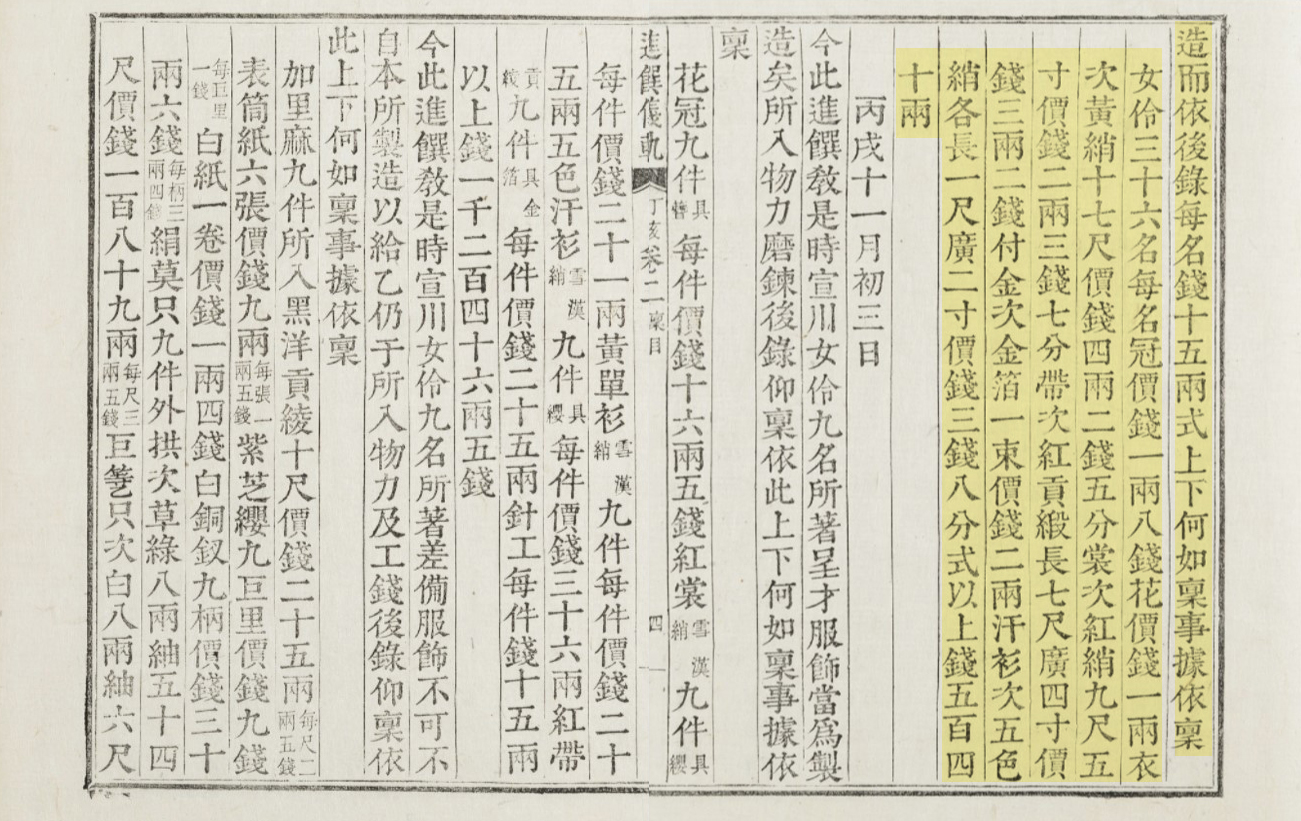 造而依後錄每名錢十五兩式上下何如稟事據依稟
女伶三十六名每名冠價錢一兩八錢花價錢一兩衣
次黃綃十七尺價錢四兩二錢五分裳次紅綃九尺五
寸價錢二兩三錢七分帶次紅貢緞長七尺廣四寸價
錢三兩二錢付金次金箔一束價錢二兩汗衫次五色
綃各長一尺廣二寸價錢三錢八分式以上錢五百四
十兩
丙戌十一月初三日
今此進饌敎是時宣川女伶九名所著呈才服飾當爲製
造矣所入物力磨鍊後錄仰稟依此上下何如稟事據依
稟
花冠九件具簪每件價錢十六兩五錢紅裳漢雪綃九件具纓
進饌儀軌 丁亥 卷二 稟目 四
每件價錢二十一兩黃單衫漢雪綃九件每件價錢二十
五兩五色汗衫漢雪綃九件具纓每件價錢三十六兩紅帶
貢綾九件具金箔每件價錢二十五兩針工每件錢十五兩
以上錢一千二百四十六兩五錢
今此進饌敎是時宣川女伶九名所著差備服飾不可不
自本所製造以給乙仍于所入物力及工錢後錄仰稟依
此上下何如稟事據依稟
加里麻九件所入黑洋貢綾十尺價錢二十五兩每尺二兩五錢
表筒紙六張價錢九兩每張一兩五錢紫芝纓九叵里價錢九錢
每叵里一錢白紙一卷價錢一兩四錢白銅釵九柄價錢三十
兩六錢每柄三兩四錢絹莫只九件外拱次草綠八兩紬五十四
尺價錢一百八十九兩每尺三兩五錢叵等乞只次白八兩紬六尺